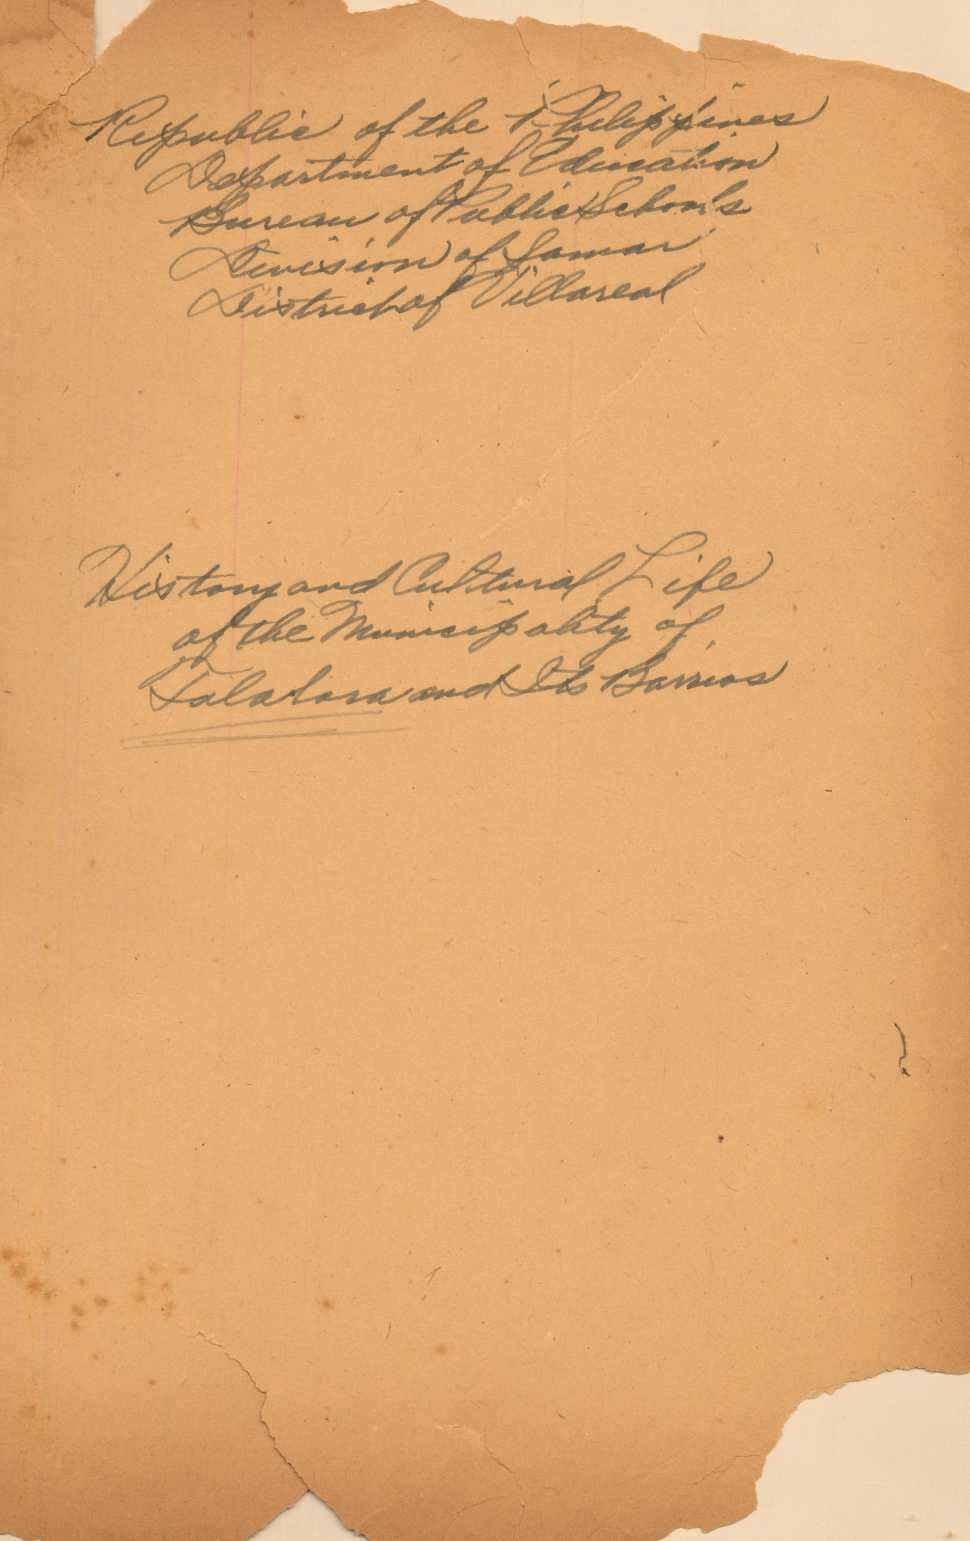 Republic of the Philippines
Department of Education
Bureau of Public Schools
Division of Samar
District of Villareal
History and Cultural Life
of the Municipality of
Talalora and Its Barrios